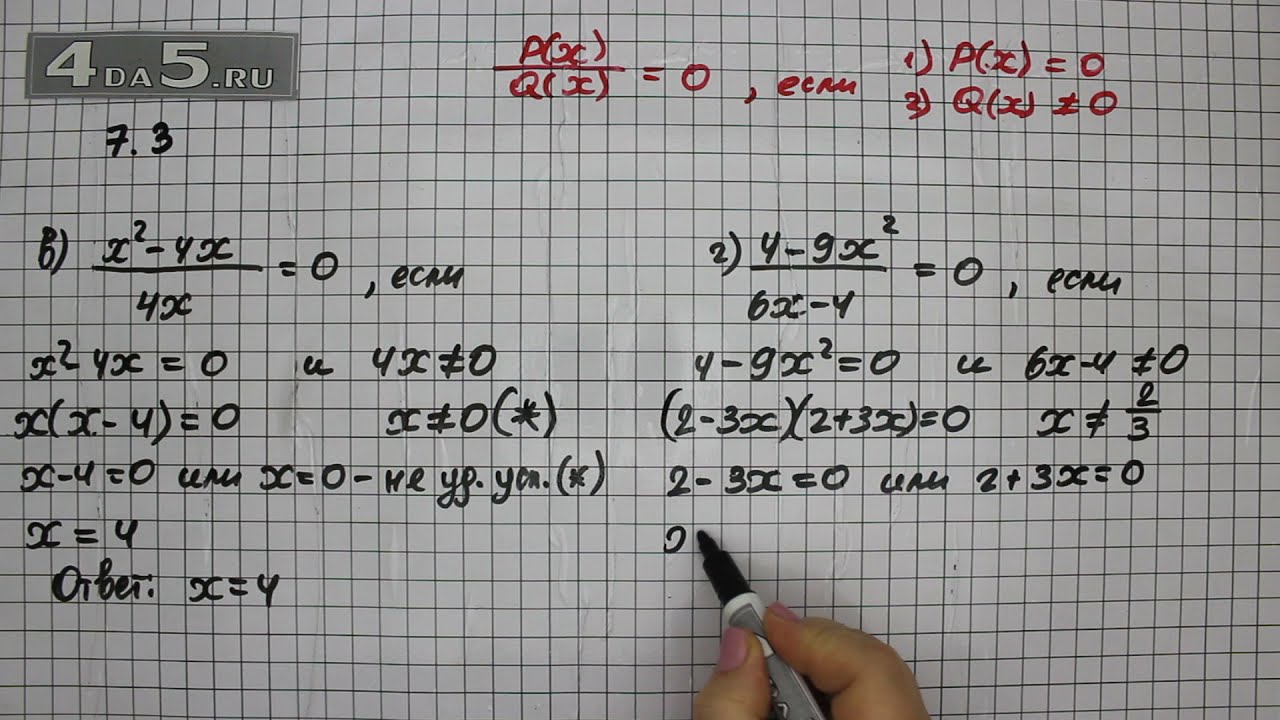 4DA5.RU
P(x)/Q(x) = 0, если
1) P(x) = 0
2) Q(x) ≠ 0
7.3
в) (x² - 4x)/4x = 0, если
x² - 4x = 0 и 4x ≠ 0
x(x - 4) = 0 x ≠ 0 (*)
x - 4 = 0 или x = 0 - не уд. усл. (*)
x = 4
Ответ: x = 4
г) (4 - 9x²)/(6x - 4) = 0, если
4 - 9x² = 0 и 6x - 4 ≠ 0
(2 - 3x)(2 + 3x) = 0 x ≠ 2/3
2 - 3x = 0 или 2 + 3x = 0